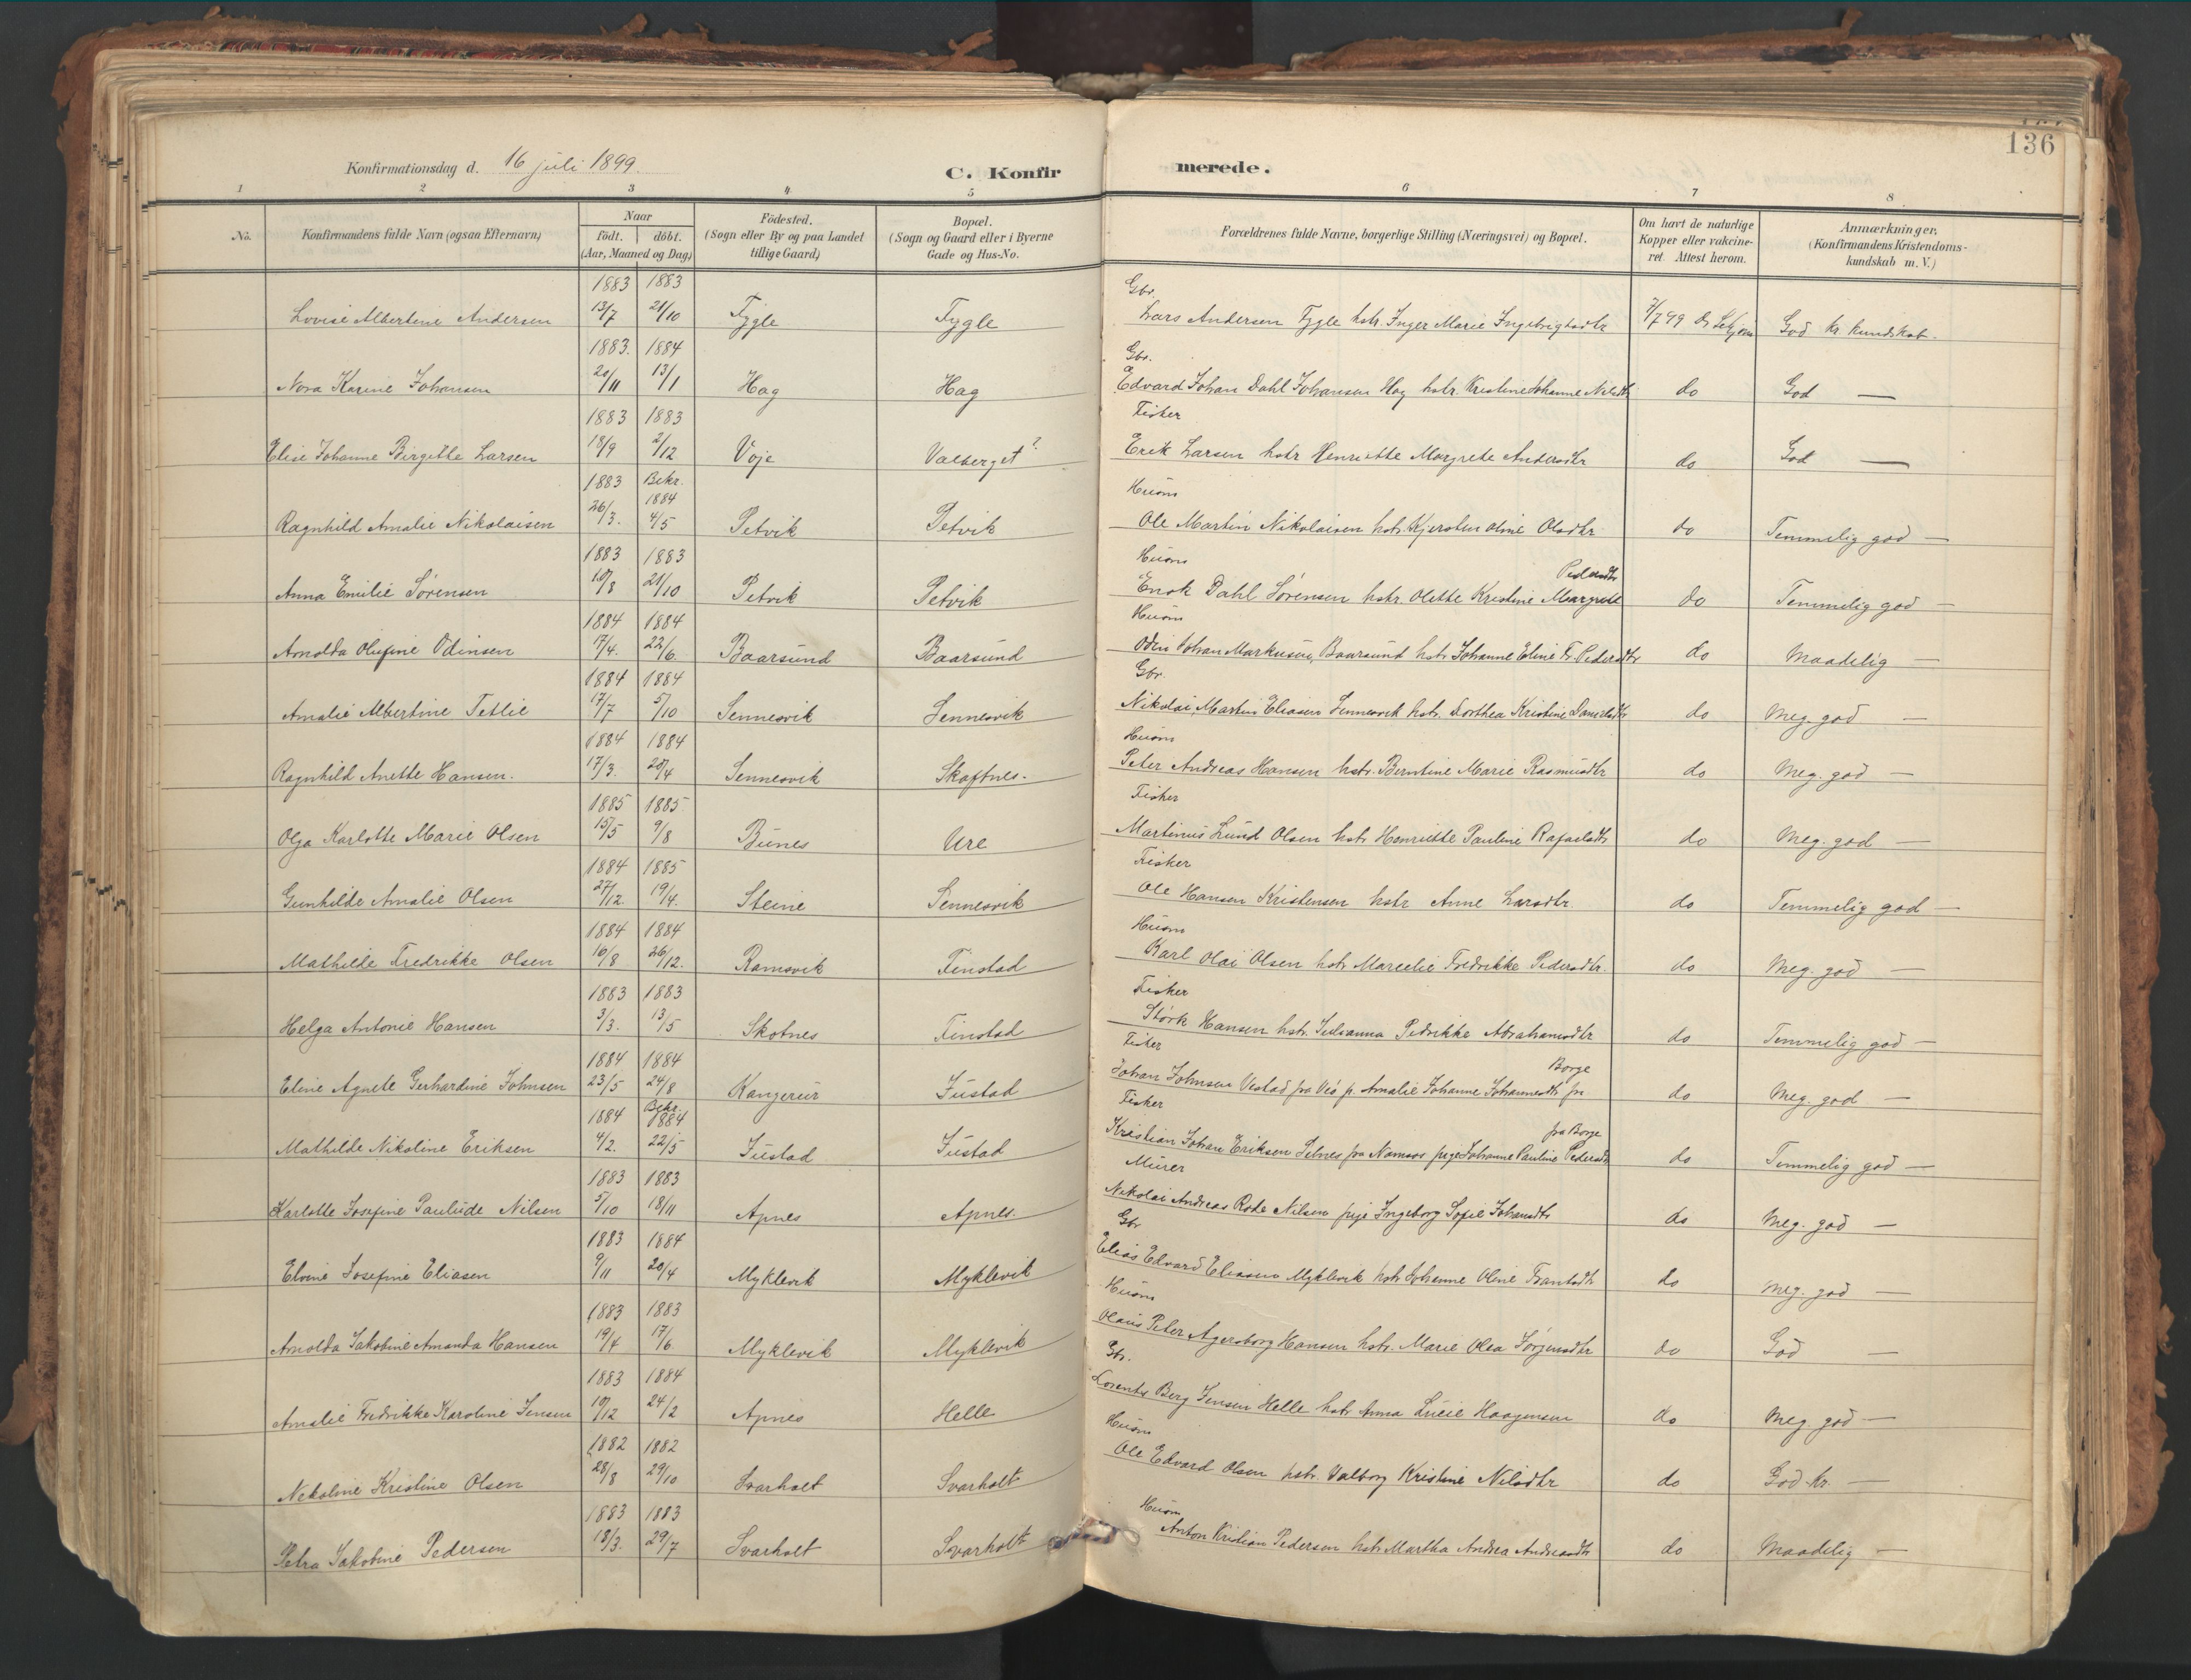 136
Konfirmationsdag d. 16 juli 1899.
C. Konfirmerede.
1 2 3 4 5 6 7 8
No.
Konfirmandens fulde Navn (ogsaa Efternavn)
Naar
födt. | döbt.
(Aar, Maaned og Dag)
Födested.
(Sogn eller By og paa Landet
tillige Gaard)
Bopæl.
(Sogn og Gaard eller i Byerne
Gade og Hus-No.
Forældrenes fulde Navne, borgerlige Stilling (Næringsvei) og Bopæl.
Om havt de naturlige
Kopper eller vakcine-
ret. Attest herom.
Anmærkninger,
(Konfirmandens Kristendoms-
kundskab m. V.)
1883 1883 Gbr.
Lovise Albertine Andersen 13/7 21/10 Tygle Tygle Lars Andersen Tygle hstr. Inger Marie Ingebrigtsdtr God kr. kundskab.
1883. 1884 Gbr.
Nora Karine Johansen 20/11 13/1 Hag Hag Edvard Johan Dahl Johansen Hag hstr. Kristine Johanne Nilsdtr do God —
1883 1883 Fisker
Elise Johanne Birgitte Larsen 18/9 2/12 Voje Valberget? Erik Larsen hstr Henriette Margrete Andersdtr do God —
1883 Bekr. 1884 Husm
Ragnhild Amalie Nikolaisen 26/3. 4/5 Petvik Petvik Ole Martin Nikolaisen hstr. Kjersten Oline Olsdtr do Temmelig god —
1883 1883 Husm Pedersdtr
Anna Emilie Sörensen 10/8 21/10 Petvik Petvik Enok Dahl Sörensen hstr. Olette Kristine Margrete do Temmelig god —
1884 1884 Husm
Arnolda Olufine Odinsen 17/4. 22/6. Baarsund Baarsund Odin Johan Markusen, Baarsund hstr Johanne Eline Fr. Pedersdtr do Maadelig —
1884 1884 Gbr.
Amalie Albertine Tetlie 17/7 5/10 Sennesvik Sennesvik Nikolai Martin Eliasen Sennesvik hstr. Dorthea Kristine Danielsdtr do Meg. god —
1884 1884 Husm
Ragnhild Anette Hansen. 17/3. 20/4 Sennesvik Skaftnes. Peter Andreas Hansen hstr. Berntine Marie Rasmusdtr do Meg. god —
1885 1885 Fisker
Olga Karlotte Marie Olsen 15/5 9/8 Bunes Ure Martinus Lund Olsen hstr Henriette Pauline Rafaelsdtr do Meg. god —
1884 1885 Fisker
Gunhilde Amalie Olsen 27/12. 19/4. Steine Sennesvik Ole Hansen Kristensen hstr Anne Larsdtr. do Temmelig god —
1884 1884 Husm
Mathilde Fredrikke Olsen 16/8 26/12. Ramsvik Finstad Karl Olai Olsen hstr Marcelie Fredrikke Pedersdtr. do Meg. god —
1883 1883 Fisker
Helga Antonie Hansen 3/3. 13/5 Skotnes Finstad Störk Hansen hstr. Julianna Pedrikke Abrahamsdtr do Temmelig god —
1884 1884 Fisker Borge
Eline Agnete Gerhardine Johnsen 23/5 24/8 Kangerur Justad Johan Johnsen Vestad fra Veö p. Amalie Johanne Johannesdtr fra do Meg. god —
1884 Bekr. 1884 Fisker fra Borge
Mathilde Nikoline Eriksen 4/2. 22/5 Justad Justad Kristian Johan Eriksen Setnes fra Namsos pige Johanne Pauline Pedersdtr do Temmelig god —
1883 1883 Murer
Karlotte Josefine Paulude Nilsen 5/10 18/11 Apnes Apnes. Nikolai Andreas Rode Nilsen pige Ingeborg Sofie Johansdtr do Meg. god —
1883 1884 Gbr
Elvine Josefine Eliasen 9/11 20/4 Myklevik Myklevik Elias Edvard Eliasen Myklevik hstr Johanne Oline Frantsdtr do Meg. god —
1883 1883 Husm
Arnolda Jakobine Amanda Hansen 19/4 17/6 Myklevik Myklevik Olaus Peter Agersborg Hansen hstr. Marie Olea Jörgensdtr do God —
1883 1884 Gbr.
Amalie Fredrikke Karoline Jensen 10/12 24/2 Apnes Helle Lorents Berg Jensen Helle hstr Anna Lucie Haagensen do Meg. god —
1882 1882 Husm
Nekoline Kristine Olsen 28/8 29/10 Svarholt Svarholt Ole Edvard Olsen hstr. Valborg Kristine Nilsdtr do God kr. —
1883 1883 Husm
Petra Jakobine Pedersen 18/3. 29/7 Svarholt Svarholt Anton Kristian Pedersen hstr Martha Andrea Andreasdtr do Maadelig —